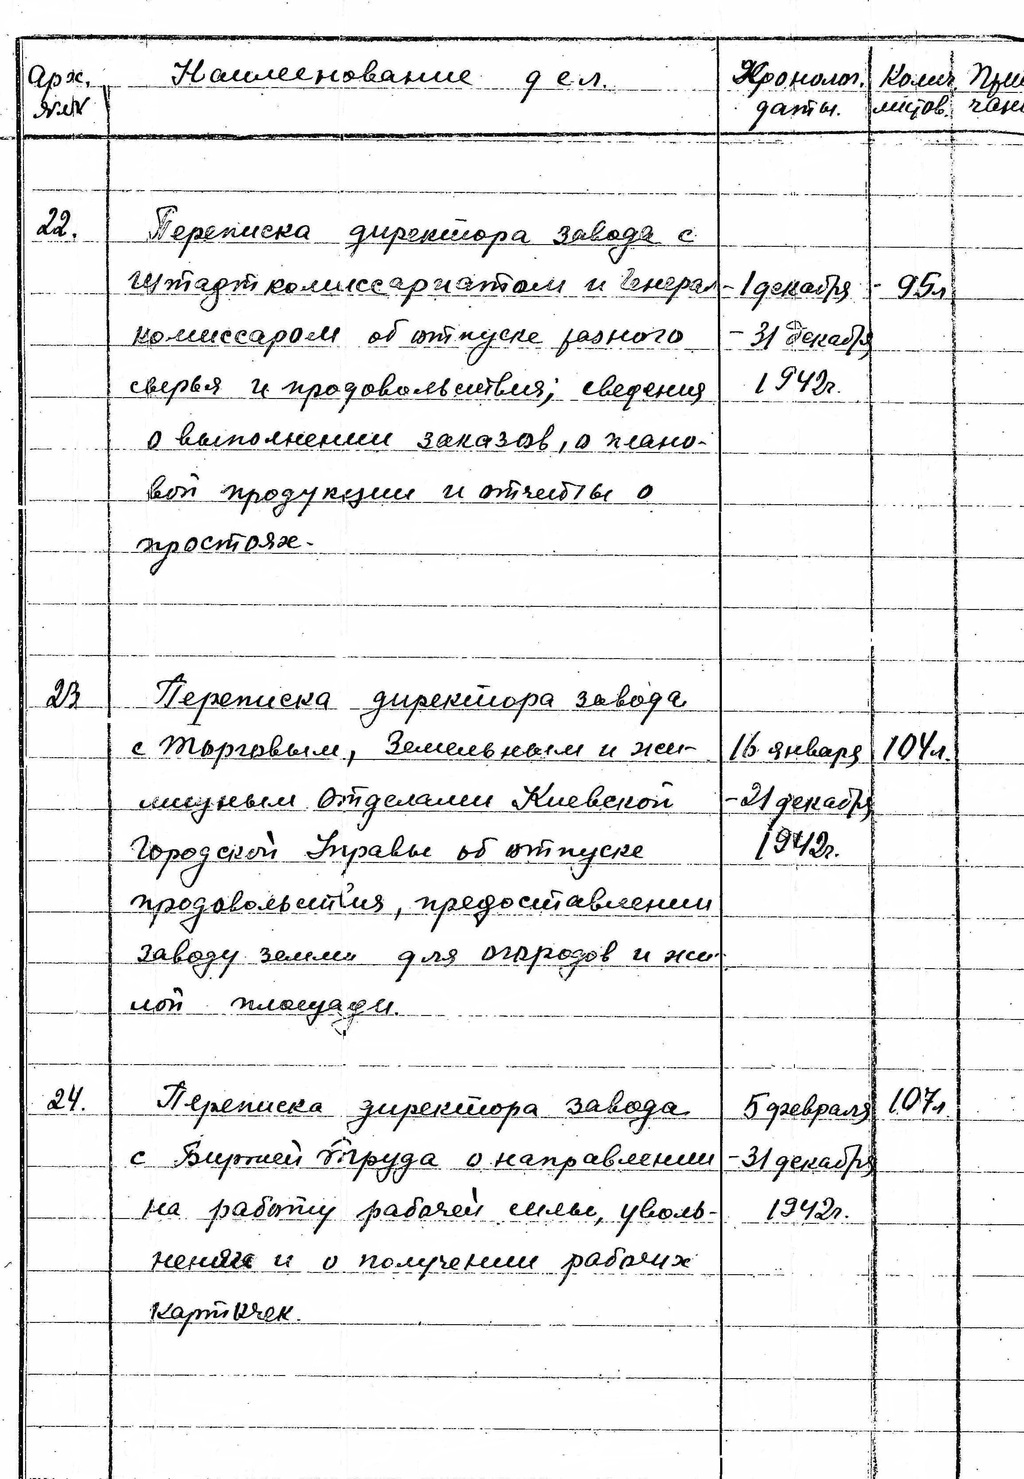 Арх. Наименование дел. Хронолог. Колич. При
№№ даты. листов. чани
22. Переписка директора завода с
Штадткомиссариатом и Генерал - 1 декабря - 95л
комиссаром об отпуске разного - 31 декабря
сырья и продовольствия; сведения 1942г.
о выполнении заказов, о плано-
вой продукции и отчеты о
простоях.
23 Переписка директора завода
с Торговым, Земельным и жи- 16 января 104л.
лищным отделами Киевской - 21 декабря
Городской Управы об отпуске 1942г.
продовольствия, предоставлении
заводу земли для огородов и жи-
лой площади.
24. Переписка директора завода 5 февраля 107л
с Биржей Труда о направлении - 31 декабря
на работу рабочей силы, уволь- 1942г.
нении и о получении рабочих
карточек.